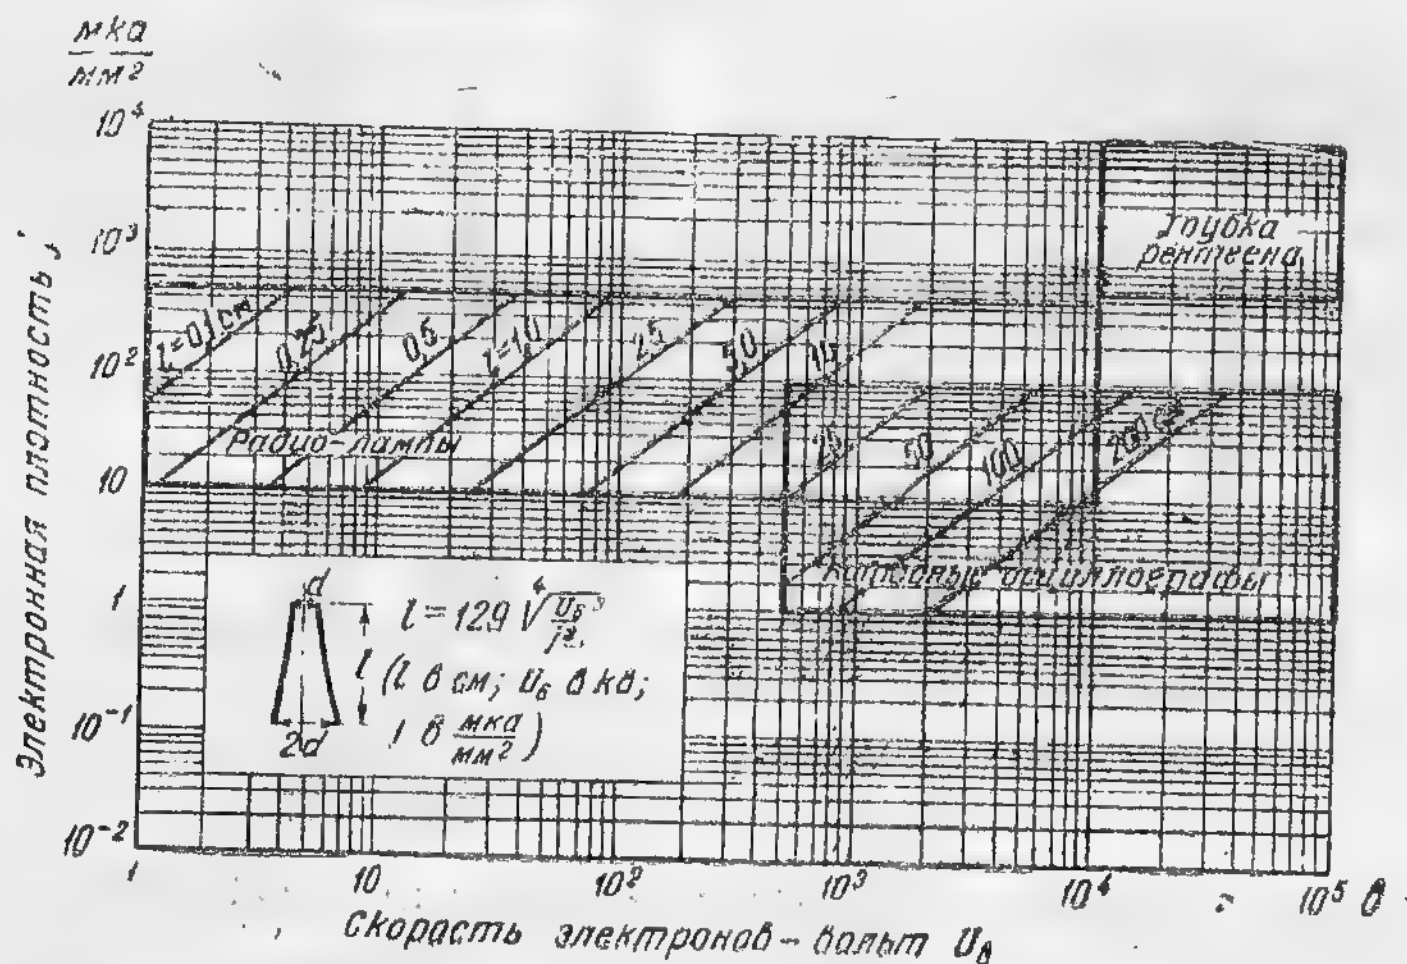 мка
мм²
10⁴
10³
10²
10
1
10⁻¹
10⁻²
Электронная плотность j
Трубка
рентгена
l=0,1 см
0,25
0,5
l=1,0
2,5
5,0
10
25
50
100
200 см
Радио-лампы
Катодные осциллографы
d
l
2d
l = 129 ∜(Uв³/j²)
(l в см; Uв в кв;
j в мка/мм²)
1
10
10²
10³
10⁴
10⁵ в
Скорасть электронов - вольт Uв